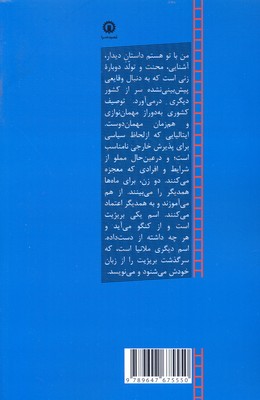 من با تو هستم داستان دیدار،
آشنایی، محنت و تولد دوبارهٔ
زنی است که به دنبال وقایعی
پیش‌بینی‌نشده سر از کشور
دیگری درمی‌آورد. توصیف
کشوری به‌دوراز مهمان‌نوازی
و هم‌زمان مهمان‌دوست.
ایتالیایی که ازلحاظ سیاسی
برای پذیرش خارجی نامناسب
است؛ و درعین‌حال مملو از
شرایط و افرادی که معجزه
می‌کنند. دو زن، برای ماه‌ها
همدیگر را می‌بینند. از هم
می‌آموزند و به همدیگر اعتماد
می‌کنند. اسم یکی بریژیت
است و از کنگو می‌آید و
هر چه داشته از دست‌داده.
اسم دیگری ملانیا است، که
سرگذشت بریژیت را از زبان
خودش می‌شنود و می‌نویسد.
9 789647 675550